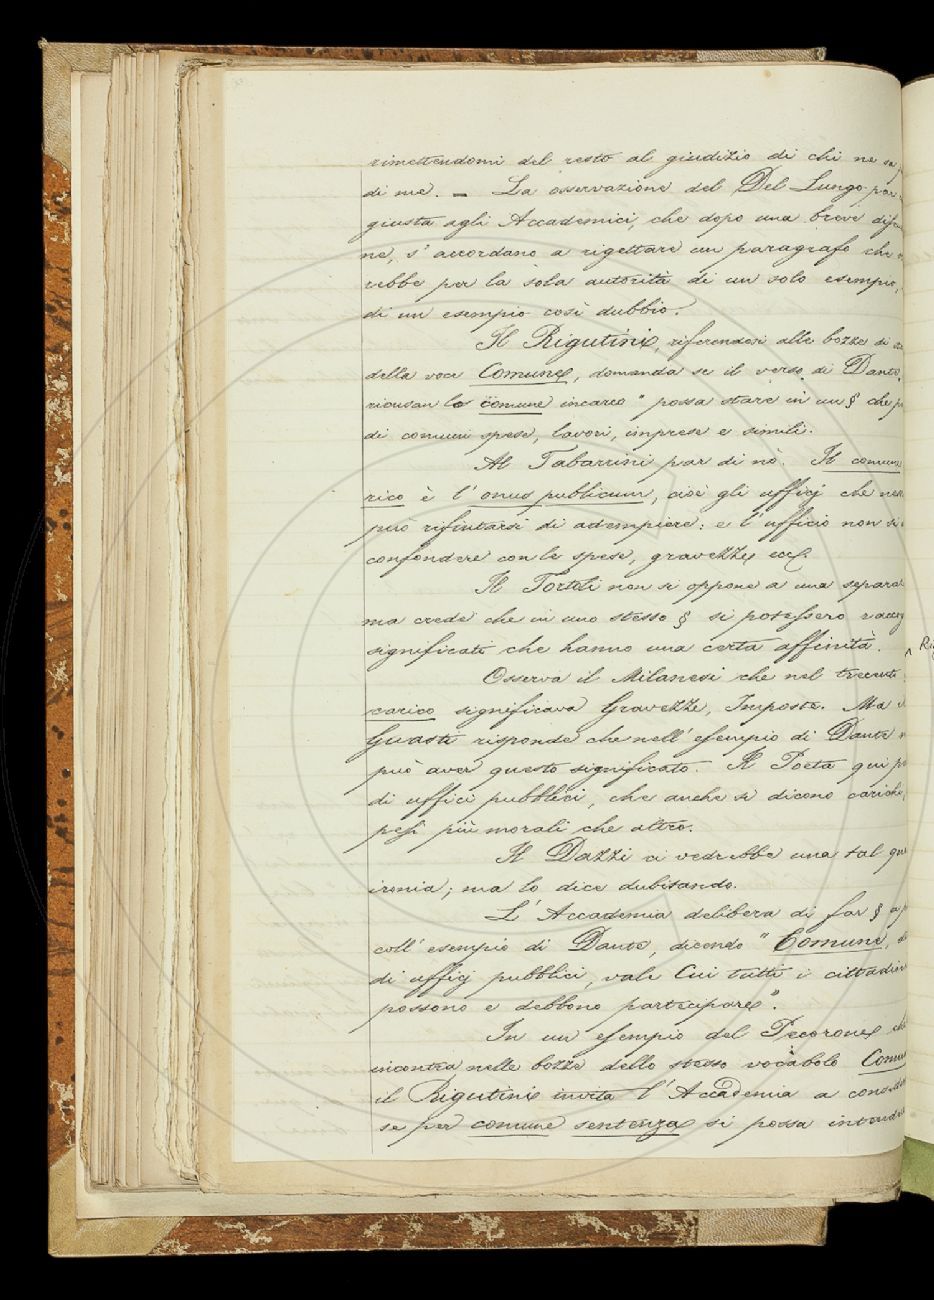 rimettendomi del resto al giudizio di chi ne sa
di me. — La osservazione del Del Lungo par
giusta agli Accademici, che dopo una breve
ne, s'accordano a rigettare un paragrafo che
rebbe per la sola autorità di un solo esempio,
di un esempio così dubbio.
Il Rigutini, riferendosi alle bozze di
della voce Comune, domanda se il verso di Dante,
ricusan lo comune incarco" possa stare in un § che
di comuni spese, lavori, imprese e simili.
Al Tabarrini par di nò. Il comune
rico è l'onus publicum, cioè gli ufficj che
può rifiutarsi di adempiere: e l'ufficio non si
confondere con le spese, gravezze ecc.
Il Tortoli non si oppone a una
ma crede che in uno stesso § si potessero
significati che hanno una certa affinità.
Rig
Osserva il Milanesi che nel trecento
carico significava Gravezze, Imposte. Ma
Guasti risponde che nell'esempio di Dante
può aver questo significato. Il Poeta qui
di uffici pubblici, che anche si dicono cariche,
pesi più morali che altro.
Il Dazzi ci vedrebbe una tal
ironia; ma lo dice dubitando.
L'Accademia delibera di far § a
coll'esempio di Dante, dicendo "Comune,
di ufficj pubblici, vale Cui tutti i cittadini
possono e debbono partecipare".
In un esempio del Pecorone che
incontra nelle bozze dello stesso vocabolo Comu
il Rigutini invita l'Accademia a
se per comune sentenza si possa